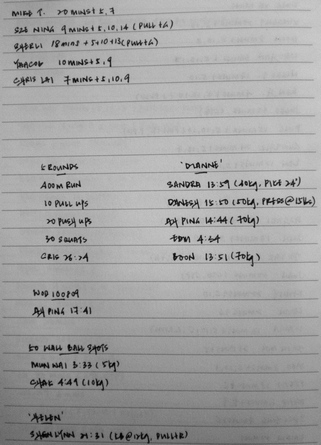 MIKE T. 20 MINS + 5, 7
SZE NING 9 MINS + 5, 10, 14 (PULL + 6)
18 MINS + 5 + 10 + 13 (PULL + 6)
YAACOB 10 MINS + 5, 9
CHRIS LAI 7 MINS + 5, 10, 9
5 ROUNDS
400M RUN
10 PULL UPS
20 PUSH UPS
30 SQUATS
CRIS 26:24
'DIANNE'
SANDRA 13:59 (40KG, PIKE 24")
DANESH 15:50 (50KG, PRESS @ 15KG)
AH PING 14:44 (70KG)
EDDI 4:54
BOON 13:51 (70KG)
WOD 100809
AH PING 17:41
50 WALL BALL SHOTS
MUN WAI 3:33 (5KG)
4:49 (10KG)
'HELEN'